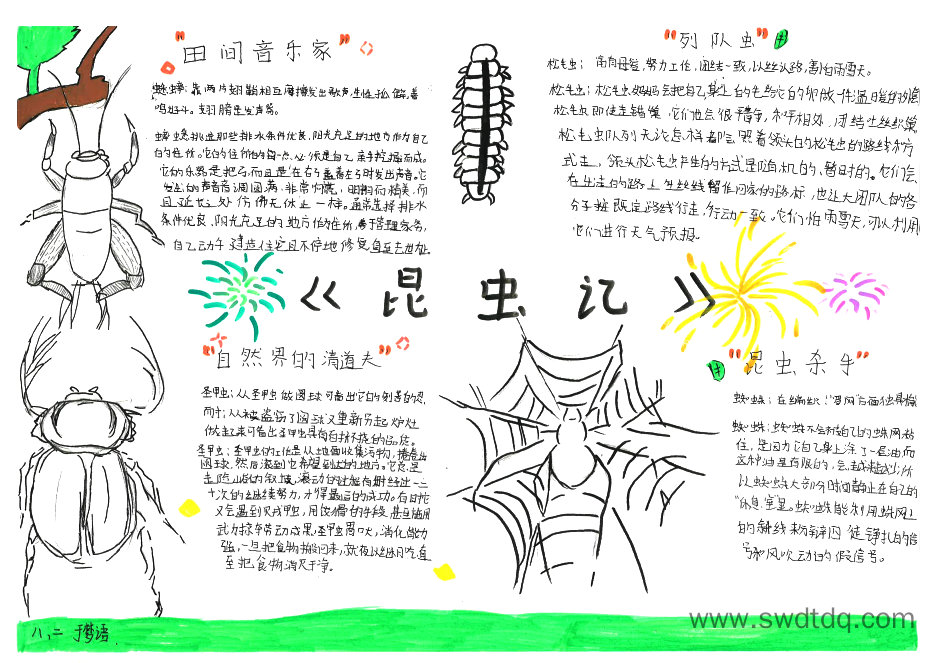 "田间音乐家"
蟋蟀：靠两片翅鞘相互磨擦发出歌声,生性孤僻,善
鸣好斗。翅膀是发声器。
蟋蟀挑选那些排水条件优良，阳光充足的地方作为自己
的住所。它的住所的每一点，必须是自己亲手挖掘而成。
它的乐器是把弓,而且是在右弓盖着左弓时发出声音。它
发出的声音音调圆满，非常响亮，明朗而精美，而
且延长之处仿佛无休止一样。通常选择排水
条件优良，阳光充足的地方作住所，善于管理家务，
自己动手建造住宅且不停地修复
"列队虫"
松毛虫：高尚母爱，努力工作，团结一致，以丝认路，害怕雨雪天。
松毛虫：松毛虫妈妈会把自己身上的毛给它的卵做一件温暖的外套
松毛虫即使走错巢，它们也会很平静，和平相处，团结吐丝织巢
松毛虫队列无论怎样都会照着领头的松毛虫的路线和方
式走，领头松毛虫产生的方式是随机的、暂时的。它们会
在生走的路上吐丝线留作回家的路标，也让大团队的各
分子按既定路线行走，行动一致。它们怕雨雪天，可以利用
它们进行天气预报。
《昆虫记》
"自然界的清道夫"
圣甲虫：从圣甲虫做圆球可看出它的刻苦的
而干；从被盗窃了圆球又重新另起炉灶
做起来可看出圣甲虫具有百折不挠的品质。
圣甲虫：圣甲虫的工作是从地面收集污物，搓卷成
圆球，然后滚到它希望到达的地方。它总是
走险峻的斜坡，滚动的过程向上经过一二
十次的继续努力，才得最后的成功。有时它
又会遇到贼甲虫，用狡猾的手段，甚至使用
武力掠夺劳动成果。圣甲虫胃口大，消化能力
强，一旦把食物搬回来，就夜以继日吃，直
至把食物消灭干净。
"昆虫杀手"
蜘蛛：在编织"网"方面独具
蜘蛛：蜘蛛不会被自己的蛛网粘
住，是因为它自己身上涂了一层油而
这种油是有限的，会越来越少，所
以蜘蛛大部分时间静止在自己的
"休息室"里。蜘蛛能利用蛛网上
的斜线来分辨囚徒挣扎的信
号和风吹动的假信号。
八、二 于梦语
www.swdtdq.com